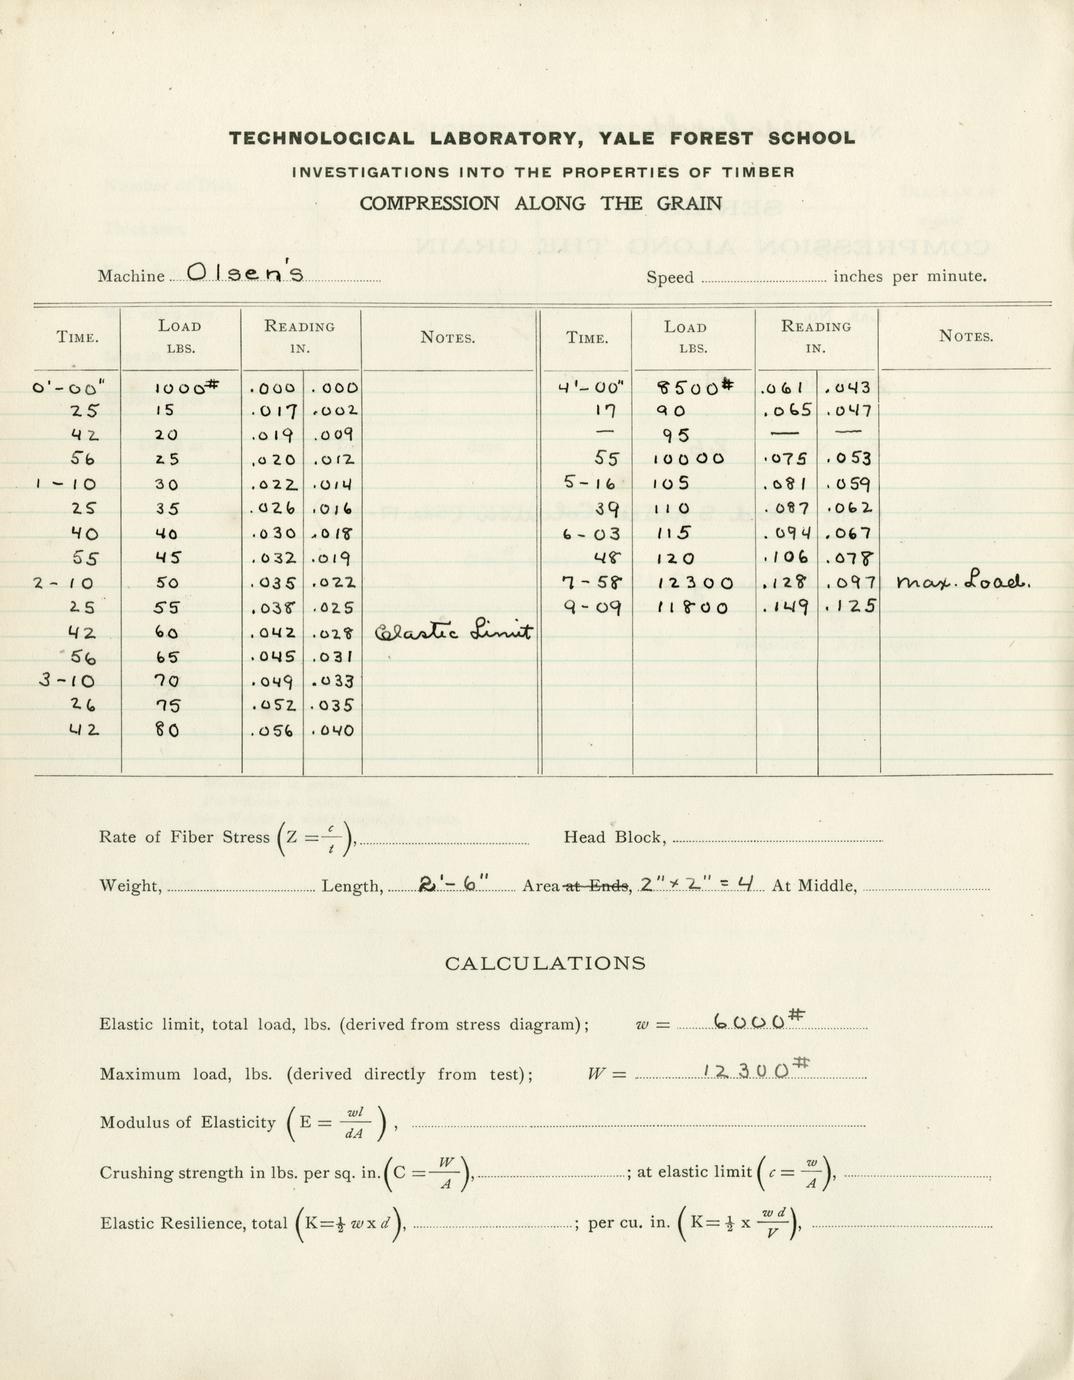 TECHNOLOGICAL LABORATORY, YALE FOREST SCHOOL
INVESTIGATIONS INTO THE PROPERTIES OF TIMBER
COMPRESSION ALONG THE GRAIN
Machine Olsen's Speed inches per minute.
TIME. LOAD LBS. READING IN. NOTES. TIME. LOAD LBS. READING IN. NOTES.
0'-00" 1000# .000 .000 4'-00" 8500# .061 .043
25 15 .017 .002 17 90 .065 .047
42 20 .019 .009 — 95 — —
56 25 .020 .012 55 10000 .075 .053
1-10 30 .022 .014 5-16 105 .081 .059
25 35 .026 .016 39 110 .087 .062
40 40 .030 .018 6-03 115 .094 .067
55 45 .032 .019 48 120 .106 .078
2-10 50 .035 .022 7-58 12300 .128 .097 Max. Load.
25 55 .038 .025 9-09 11800 .149 .125
42 60 .042 .028 Elastic Limit
56 65 .045 .031
3-10 70 .049 .033
26 75 .052 .035
42 80 .056 .040
Rate of Fiber Stress (Z = c/t), Head Block,
Weight, Length, 2'-6" Area at Ends, 2" x 2" = 4 At Middle,
CALCULATIONS
Elastic limit, total load, lbs. (derived from stress diagram); w = 6000#
Maximum load, lbs. (derived directly from test); W = 12300#
Modulus of Elasticity (E = wl/dA),
Crushing strength in lbs. per sq. in. (C = W/A), ; at elastic limit (c = w/A),
Elastic Resilience, total (K=½ w x d), ; per cu. in. (K=½ x w d/V),